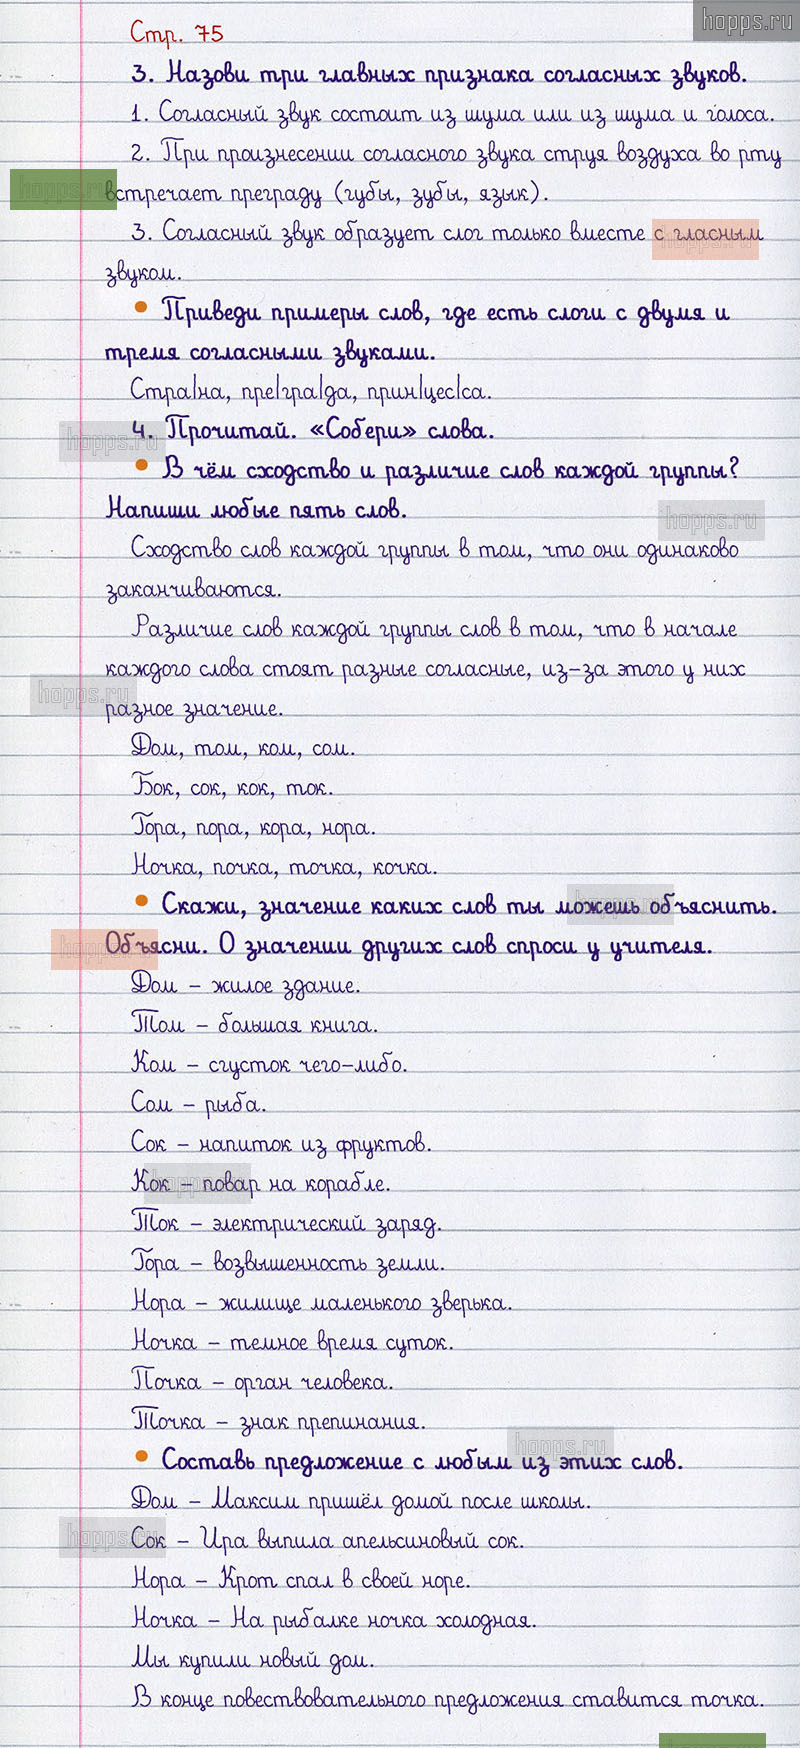 hopps.ru
Стр. 75
3. Назови три главных признака согласных звуков.
1. Согласный звук состоит из шума или из шума и голоса.
2. При произнесении согласного звука струя воздуха во рту
hopps.ru
встречает преграду (губы, зубы, язык).
3. Согласный звук образует слог только вместе с гласным
hopps.ru
звуком.
• Приведи примеры слов, где есть слоги с двумя и
тремя согласными звуками.
Стра|на, пре|гра|да, прин|цес|са.
4. Прочитай. «Собери» слова.
hopps.ru
• В чём сходство и различие слов каждой группы?
Напиши любые пять слов.
hopps.ru
Сходство слов каждой группы в том, что они одинаково
заканчиваются.
Различие слов каждой группы слов в том, что в начале
каждого слова стоят разные согласные, из-за этого у них
hopps.ru
разное значение.
Дом, том, ком, сом.
Бок, сок, кок, ток.
Гора, пора, кора, нора.
Ночка, почка, точка, кочка.
• Скажи, значение каких слов ты можешь объяснить.
hopps.ru
Объясни. О значении других слов спроси у учителя.
hopps.ru
Дом – жилое здание.
Том – большая книга.
Ком – сгусток чего-либо.
Сом – рыба.
Сок – напиток из фруктов.
Кок – повар на корабле.
hopps.ru
Ток – электрический заряд.
Гора – возвышенность земли.
Нора – жилище маленького зверька.
Ночка – темное время суток.
Почка – орган человека.
Точка – знак препинания.
hopps.ru
• Составь предложение с любым из этих слов.
Дом – Максим пришёл домой после школы.
hopps.ru
Сок – Ира выпила апельсиновый сок.
Нора – Крот спал в своей норе.
Ночка – На рыбалке ночка холодная.
Мы купили новый дом.
В конце повествовательного предложения ставится точка.